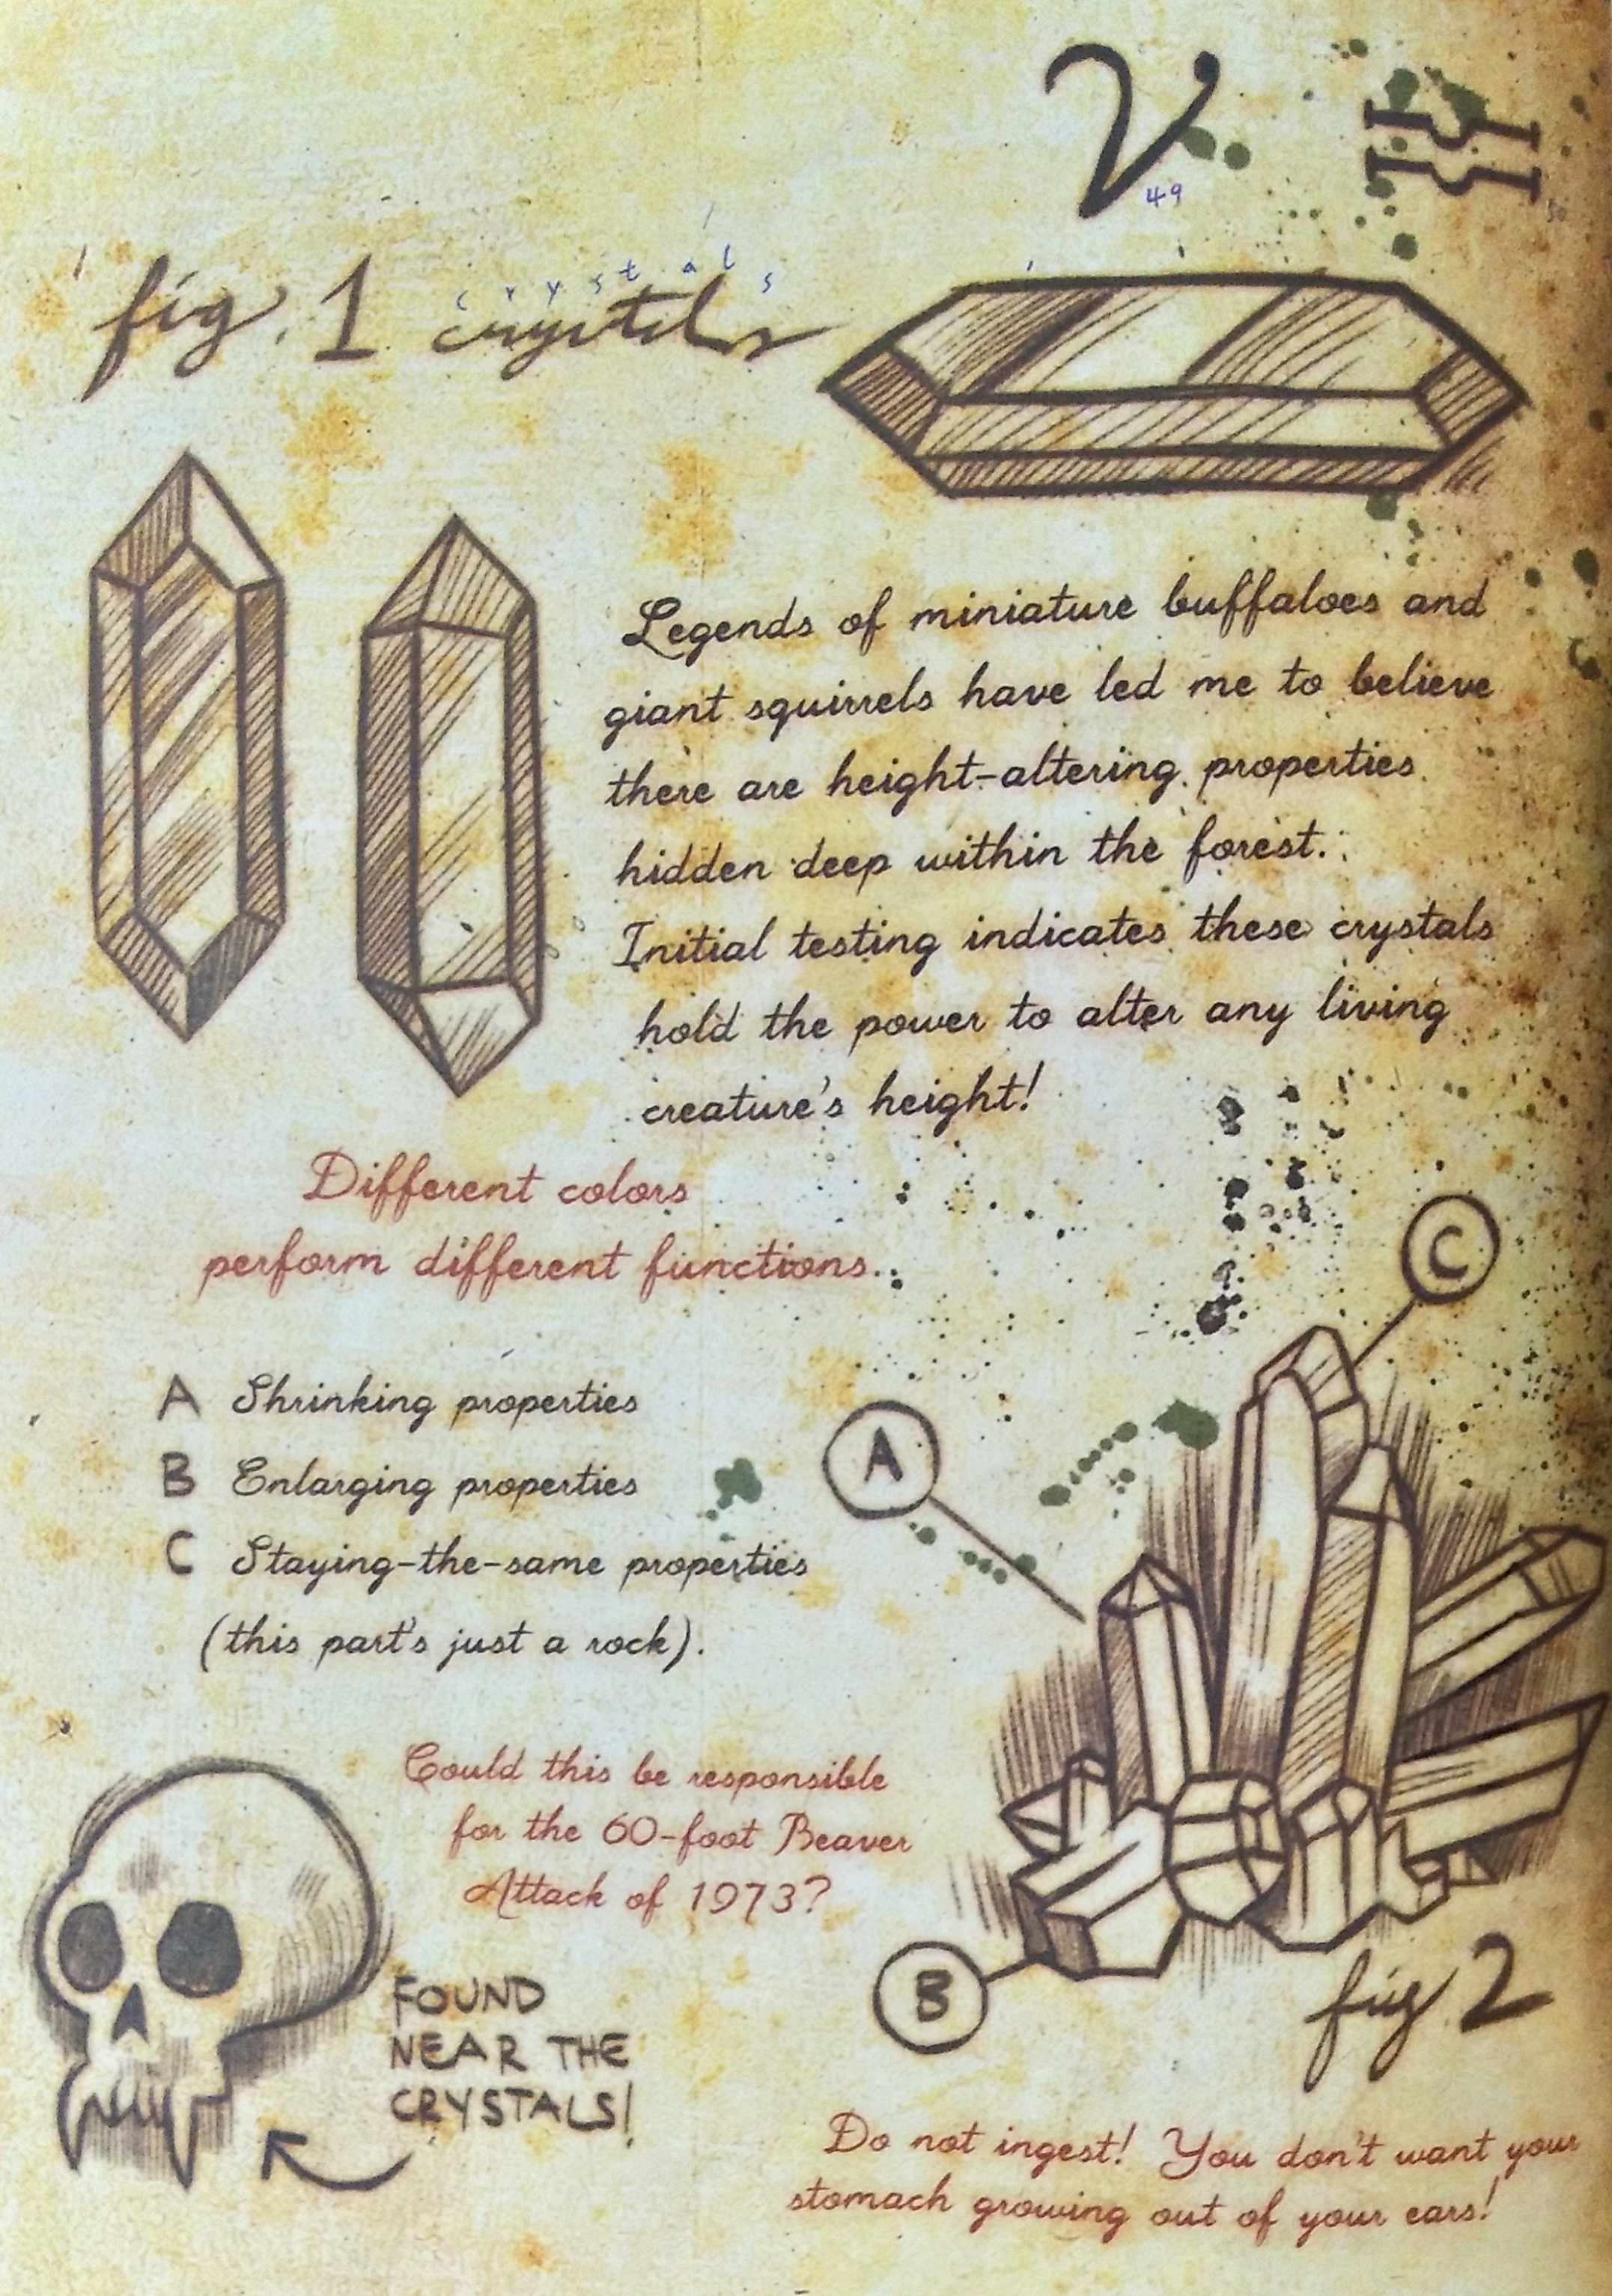 V
49
fig. 1 crystals
crystals
Legends of miniature buffaloes and
giant squirrels have led me to believe
there are height-altering properties
hidden deep within the forest.
Initial testing indicates these crystals
hold the power to alter any living
creature's height!
Different colors
perform different functions.
C
A Shrinking properties
B Enlarging properties
C Staying-the-same properties
(this part's just a rock).
A
Could this be responsible
for the 60-foot Beaver
Attack of 1973?
FOUND
NEAR THE
CRYSTALS!
B
fig 2
Do not ingest! You don't want your
stomach growing out of your ears!